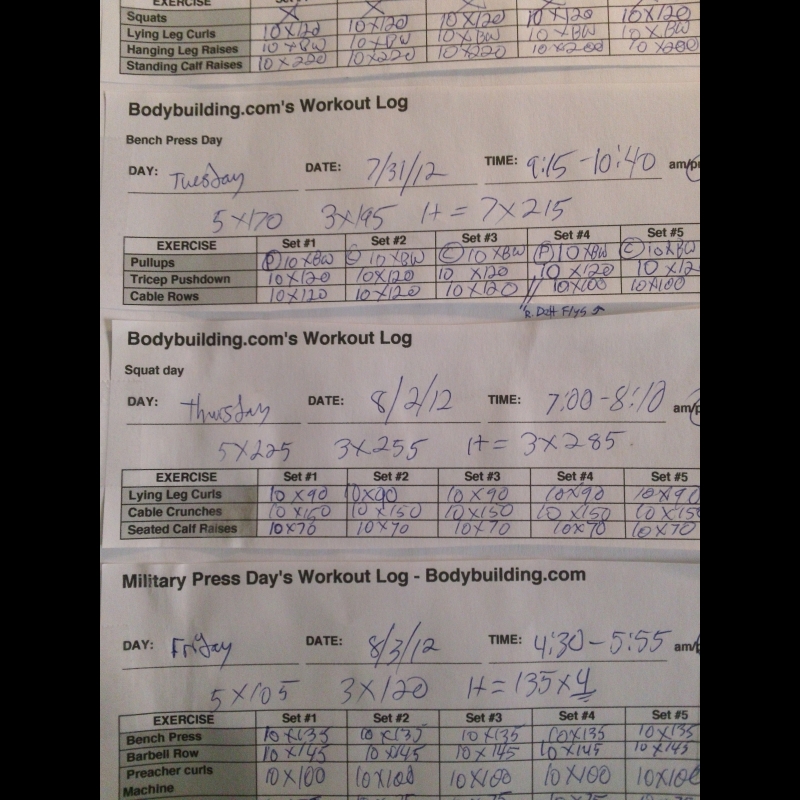 EXERCISE
Squats X X 10X120 10X120 10X120
Lying Leg Curls 10X120 10X120 10XBW 10XBW 10XBW
Hanging Leg Raises 10XBW 10XBW 10X220 10X200 10X200
Standing Calf Raises 10X220 10X220
Bodybuilding.com's Workout Log
Bench Press Day
DAY: Tuesday DATE: 7/31/12 TIME: 9:15-10:40 am/p
5X170 3X195 1+ = 7X215
EXERCISE Set #1 Set #2 Set #3 Set #4 Set #5
Pullups P 10XBW C 10XBW C 10XBW P 10XBW C 10XBW
Tricep Pushdown 10X120 10X120 10 X120 10 X120 10 X12
Cable Rows 10X120 10X120 10X120 10X100 10X100
R. Delt Flys
Bodybuilding.com's Workout Log
Squat day
DAY: Thursday DATE: 8/2/12 TIME: 7:00-8:10 am/p
5X225 3X255 1+= 3X285
EXERCISE Set #1 Set #2 Set #3 Set #4 Set #5
Lying Leg Curls 10X90 10X90 10X90 10X90 10X90
Cable Crunches 10X150 10X150 10X150 10X150 10X15
Seated Calf Raises 10X70 10X70 10X70 10X70 10X70
Military Press Day's Workout Log - Bodybuilding.com
DAY: Friday DATE: 8/3/12 TIME: 4:30-5:55 am/
5X105 3X120 1+=135X4
EXERCISE Set #1 Set #2 Set #3 Set #4 Set #5
Bench Press 10X135 10X135 10X135 10X135 10X135
Barbell Row 10X145 10X145 10X145 10X145 10X145
Preacher curls 10X100 10X100 10X100 10X100 10X100
Machine